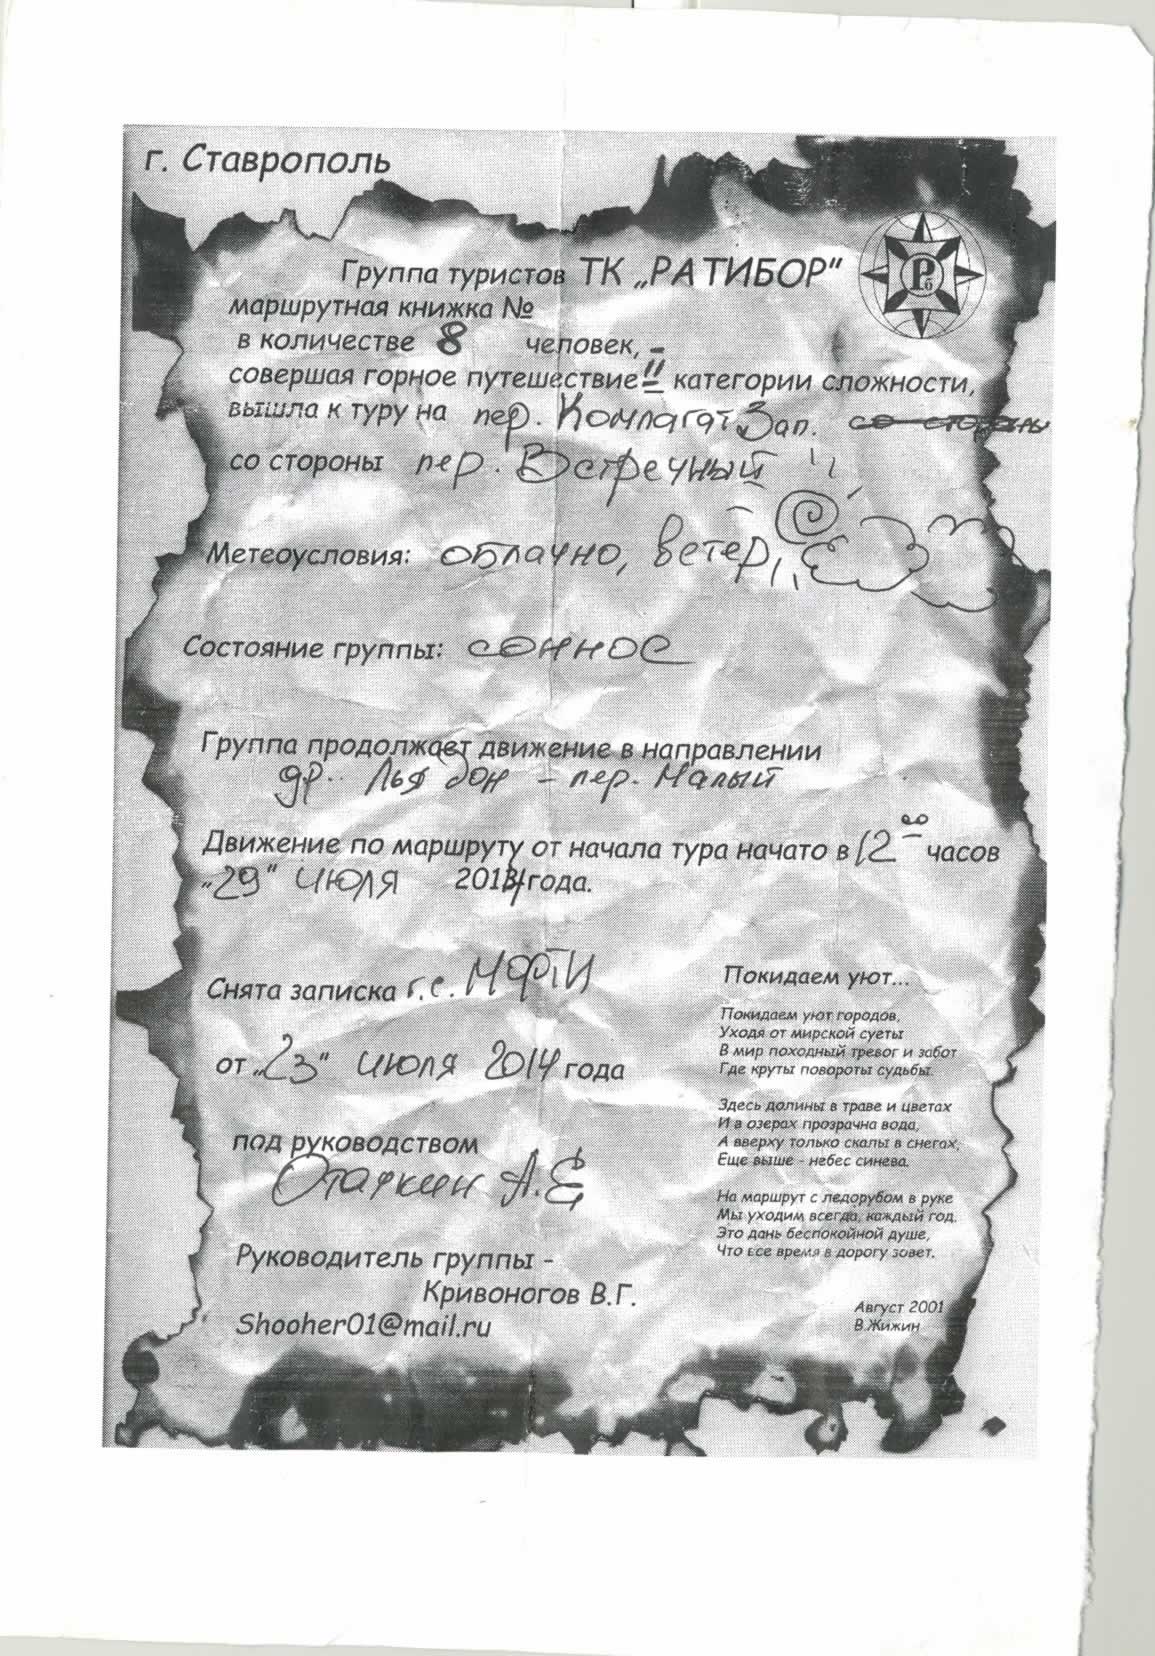 г. Ставрополь
Группа туристов ТК „РАТИБОР“
Рб
маршрутная книжка №
в количестве 8 человек,
совершая горное путешествие II категории сложности,
вышла к туру на пер. Комлагат Зап. со стороны
со стороны пер. Встречный
Метеоусловия: облачно, ветер,
Состояние группы: сонное
Группа продолжает движение в направлении
др. Лья бон – пер. Малый
Движение по маршруту от начала тура начато в 12 00 часов
„29“ июля 2014 года.
Снята записка г.с. МФТИ
от „23“ июля 2014 года
под руководством
А.Е
Руководитель группы -
Кривоногов В.Г.
Shooher01@mail.ru
Покидаем уют...
Покидаем уют городов,
Уходя от мирской суеты
В мир походный тревог и забот
Где круты повороты судьбы.
Здесь долины в траве и цветах
И в озерах прозрачна вода,
А вверху только скалы в снегах,
Еще выше - небес синева.
На маршрут с ледорубом в руке
Мы уходим всегда, каждый год.
Это дань беспокойной душе,
Что все время в дорогу зовет.
Август 2001
В.Жижин